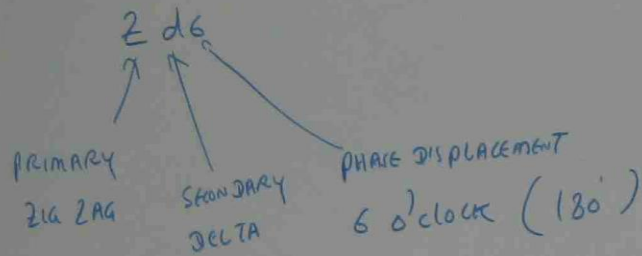 Z d6
PRIMARY
ZIG ZAG
SECONDARY
DELTA
PHASE DISPLACEMENT
6 O'clock (180°)